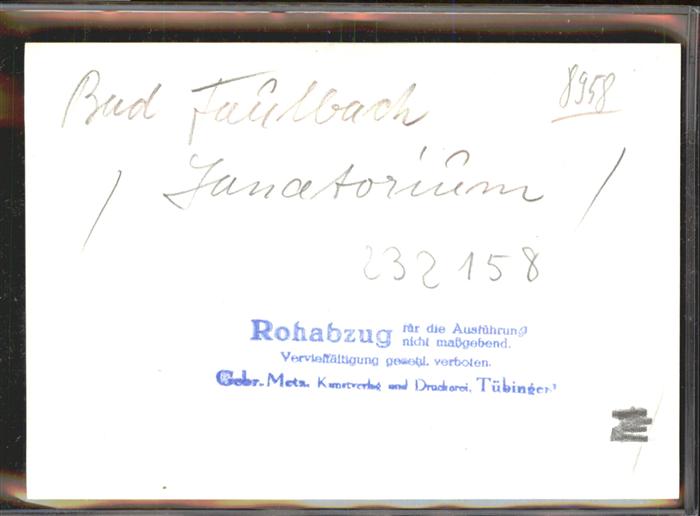 Bad Faulbach
8958
/ Sanatorium /
232158
Rohabzug für die Ausführung
nicht maßgebend.
Vervielfältigung gesetzl. verboten.
Gebr. Metz, Kunstverlag und Druckerei, Tübingen